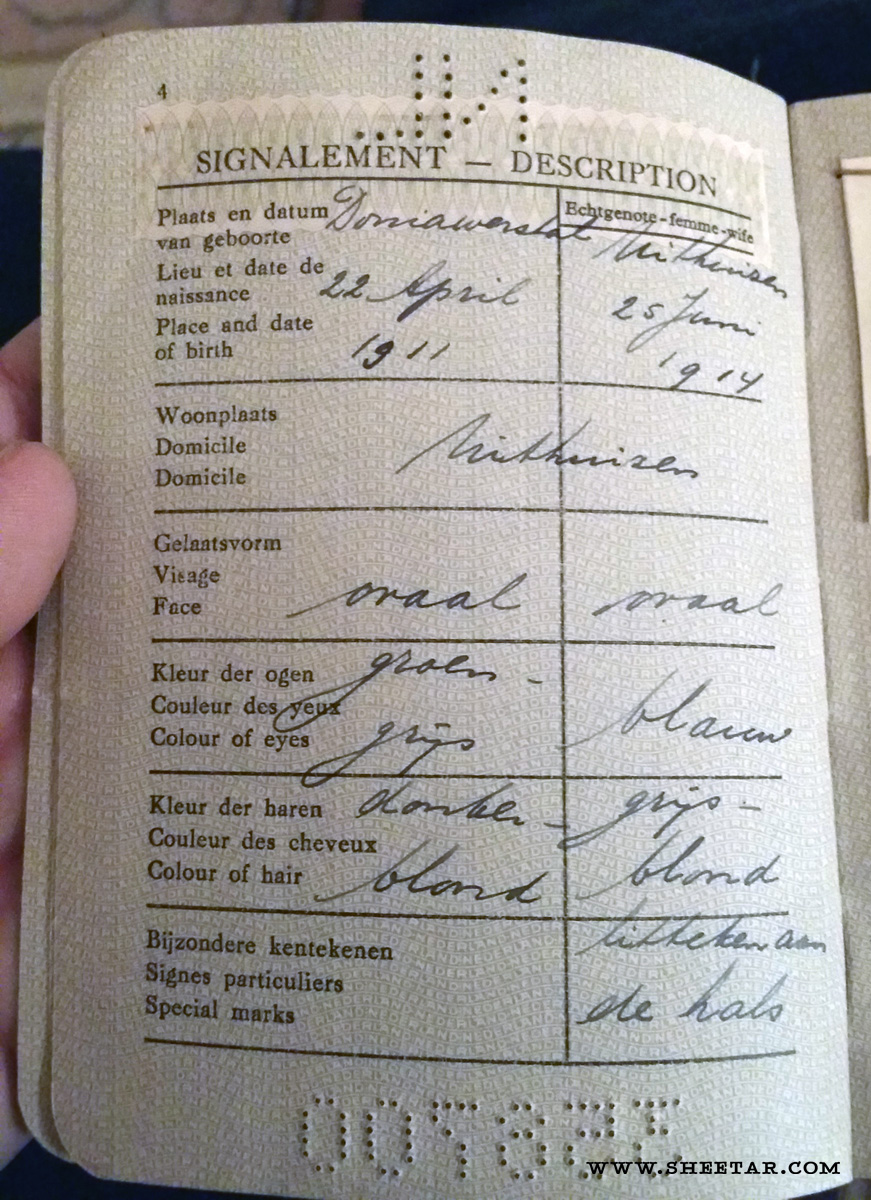 4
SIGNALEMENT — DESCRIPTION
Plaats en datum Doniawerstal Echtgenote-femme-wife
van geboorte Uithuizen
Lieu et date de
naissance 22 April 25 Juni
Place and date
of birth 1911 1914
Woonplaats
Domicile Uithuizen
Domicile
Gelaatsvorm
Visage
Face ovaal ovaal
Kleur der ogen groen -
Couleur des yeux blauw
Colour of eyes grijs
Kleur der haren donker - grijs -
Couleur des cheveux
Colour of hair blond blond
Bijzondere kentekenen litteken aan
Signes particuliers
Special marks de hals
WWW.SHEETAR.COM